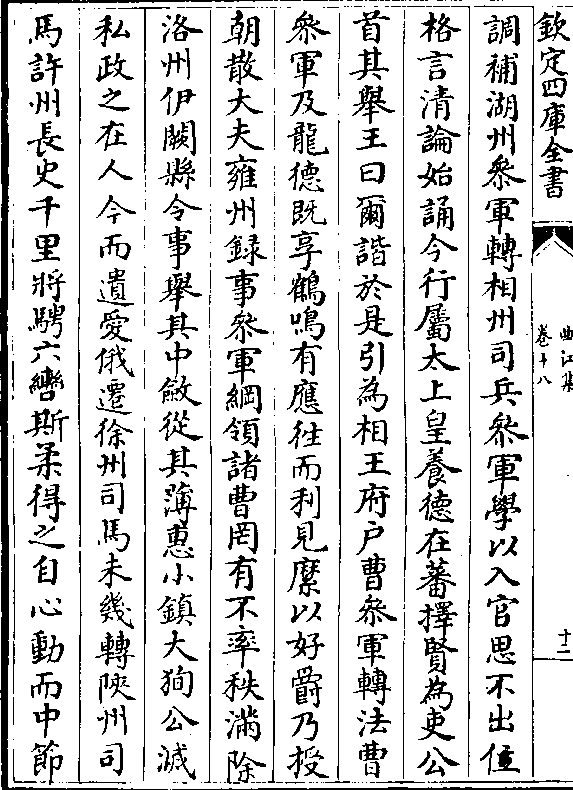 欽定四庫全書
曲江集
卷十八
十二
調補湖州叅軍轉相州司兵叅軍學以入官思不出位
格言清論始誦今行屬太上皇養德在蕃擇賢為吏公
首其舉王曰爾諧於是引為相王府户曹叅軍轉法曹
叅軍及龍德既享鶴鳴有應徃而利見縻以好爵乃授
朝散大夫雍州録事叅軍綱領諸曹罔有不率秩滿除
洛州伊闕縣令事舉其中斂從其薄惠小鎮大狥公滅
私政之在人今而遺愛俄遷徐州司馬未幾轉陜州司
馬許州長史千里將騁六轡斯柔得之自心動而中節